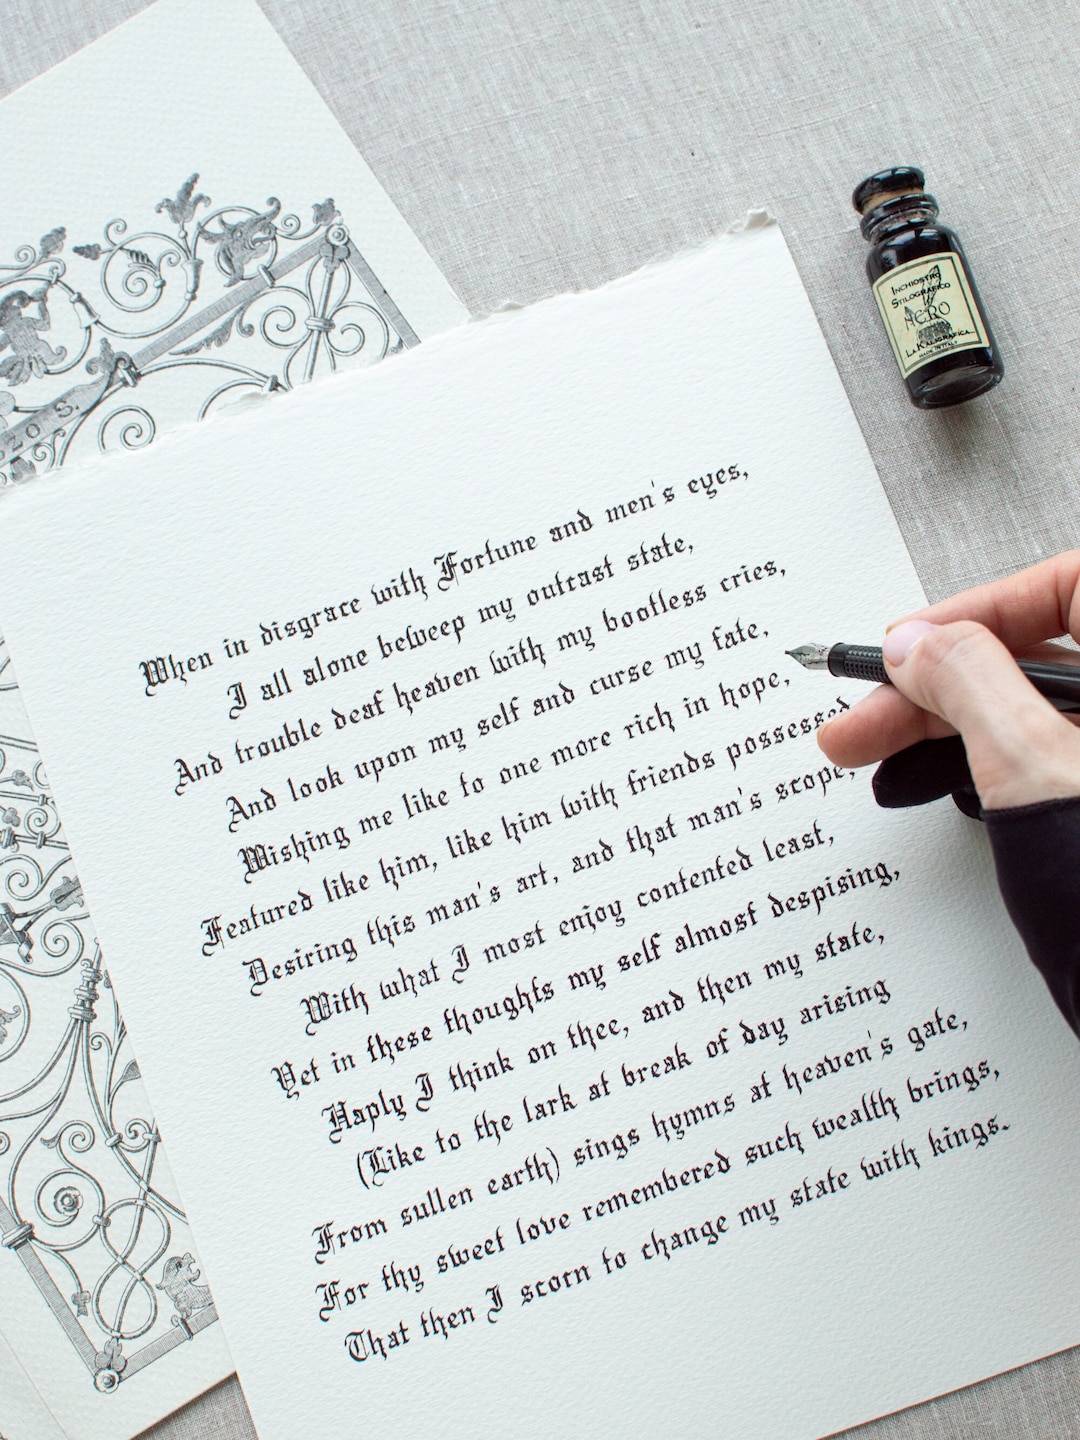 When in disgrace with Fortune and men's eyes,
I all alone beweep my outcast state,
And trouble deaf heaven with my bootless cries,
And look upon my self and curse my fate,
Wishing me like to one more rich in hope,
Featured like him, like him with friends possessed,
Desiring this man's art, and that man's scope,
With what I most enjoy contented least,
Yet in these thoughts my self almost despising,
Haply I think on thee, and then my state,
(Like to the lark at break of day arising
From sullen earth) sings hymns at heaven's gate,
For thy sweet love remembered such wealth brings,
That then I scorn to change my state with kings.
INCHIOSTRO
STILOGRAFICO
NERO
LA KALIGRAFICA
MADE IN ITALY
20 S.